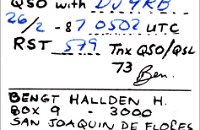 QSO with DJ4RB
26/2 -87 0502 UTC
RST 579 Tnx QSO/QSL
73 Ben.
BENGT HALLDEN H.
BOX 9 - 3000
SAN JOAQUIN DE FLORES